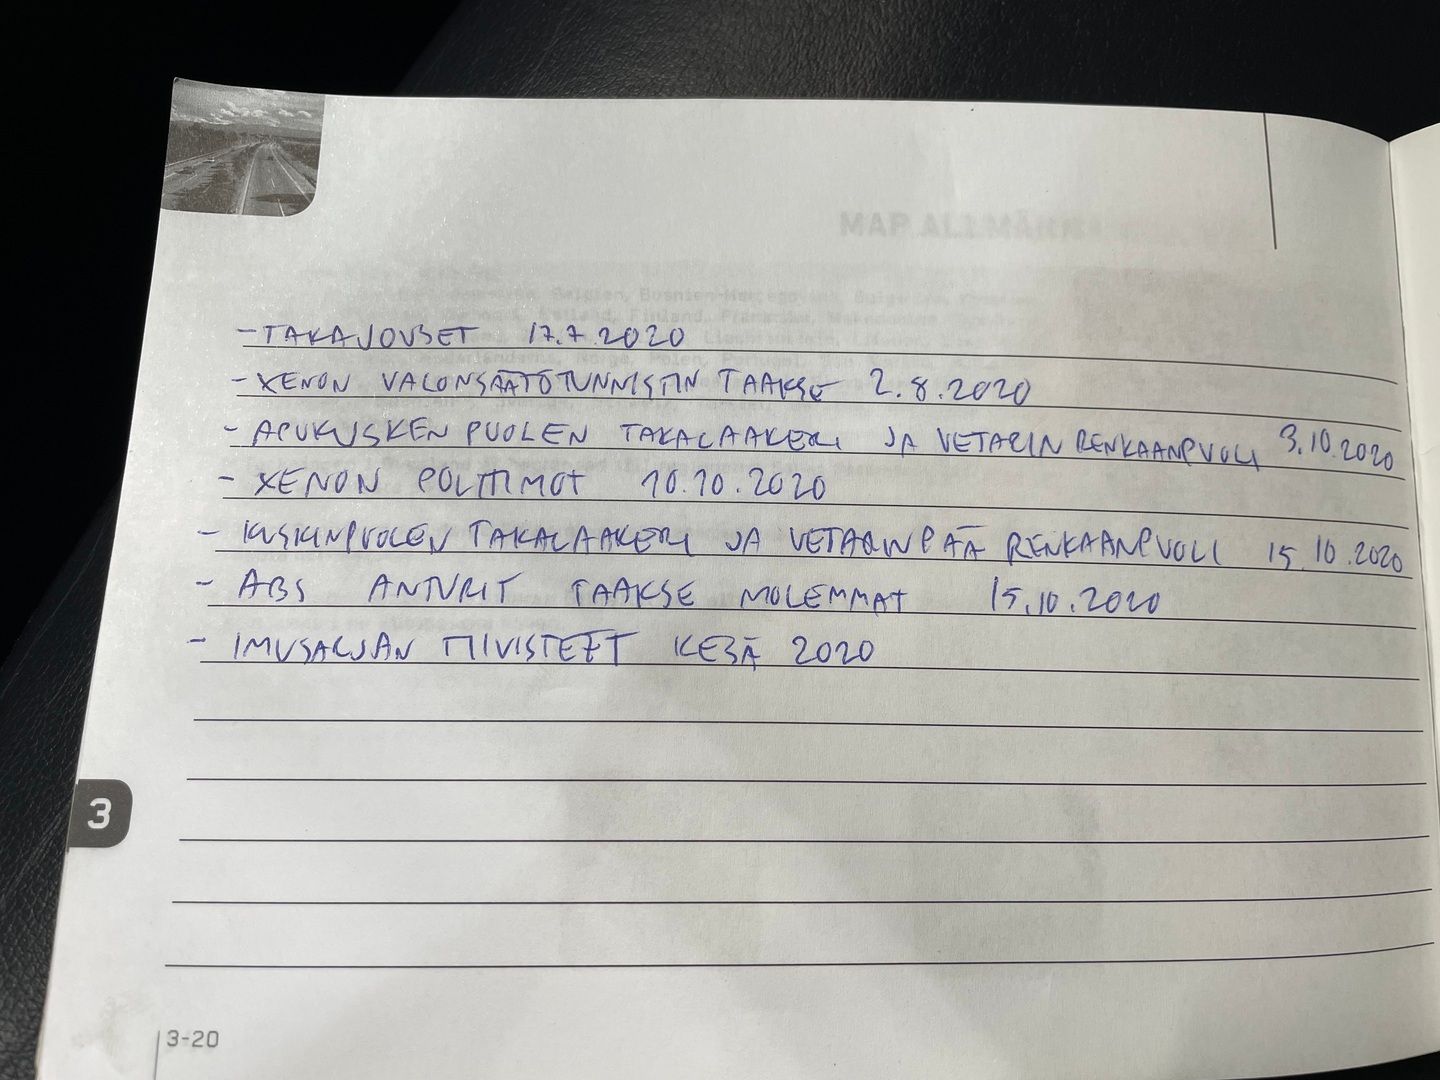 MAP ALLMÄNNA
- TAKAJOUSET 17.7.2020
- XENON VALONSÄÄTÖTUNNISTIN TAAKSE 2.8.2020
- APUKUSKEN PUOLEN TAKALAAKERI JA VETARIN RENKAANPUOLI 3.10.2020
- XENON POLTTIMOT 10.10.2020
- KUSKINPUOLEN TAKALAAKERI JA VETARINPÄÄ RENKAANPUOLI 15.10.2020
- ABS ANTURIT TAAKSE MOLEMMAT 15.10.2020
- IMUSARJAN TIIVISTEET KESÄ 2020
3
3-20